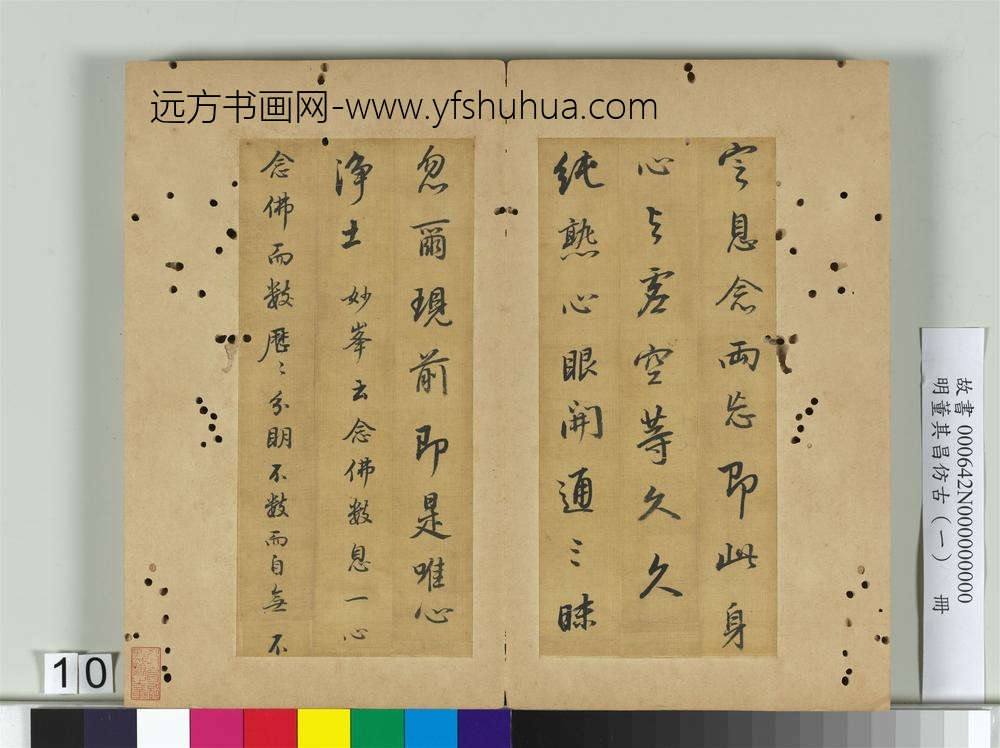 远方书画网-www.yfshuhua.com
定息念兩忘即此身
心與虛空等久久
純熟心眼開通三昧
忽爾現前即是唯心
淨土 妙峯云念佛數息一心
念佛而數歷歷分明不數而自無不
故書 000642N000000000
明董其昌仿古(一) 冊
10